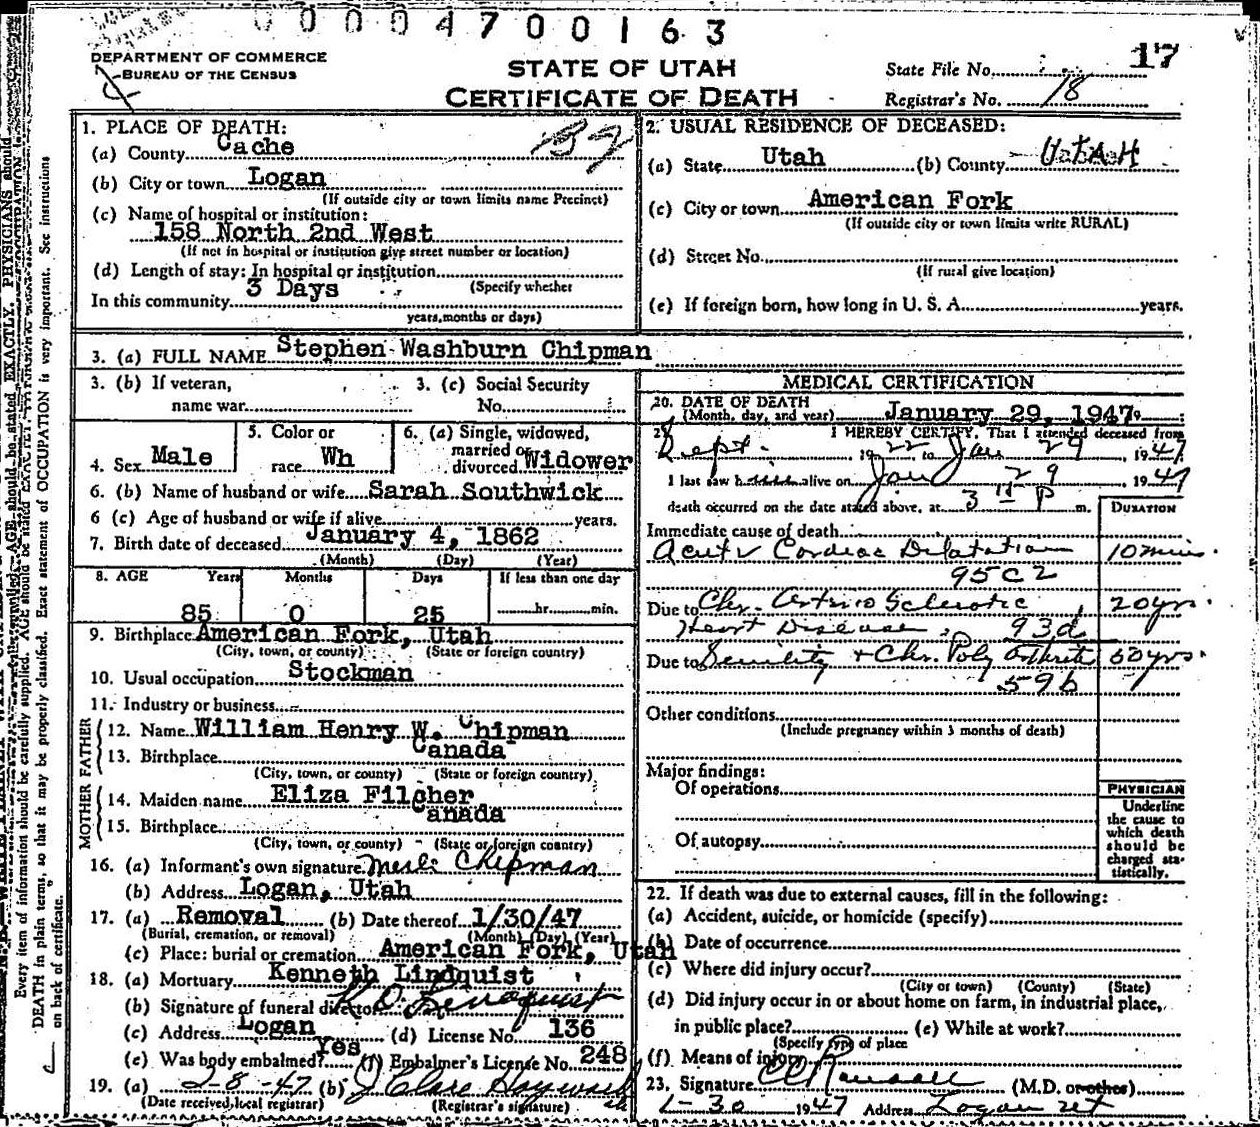 0000470 0163
DEPARTMENT OF COMMERCE
BUREAU OF THE CENSUS
STATE OF UTAH
CERTIFICATE OF DEATH
State File No. 17
Registrar's No. 18
1. PLACE OF DEATH:
(a) County Cache
(b) City or town Logan
(If outside city or town limits name Precinct)
(c) Name of hospital or institution:
158 North 2nd West
(If not in hospital or institution give street number or location)
(d) Length of stay: In hospital or institution
3 Days (Specify whether
In this community
years, months or days)
2. USUAL RESIDENCE OF DECEASED:
(a) State Utah (b) County UTAH
(c) City or town American Fork
(If outside city or town limits write RURAL)
(d) Street No.
(If rural give location)
(e) If foreign born, how long in U. S. A. years.
3. (a) FULL NAME Stephen Washburn Chipman
3. (b) If veteran,
name war
3. (c) Social Security
No.
4. Sex Male
5. Color or
race Wh
6. (a) Single, widowed,
married or
divorced Widower
6. (b) Name of husband or wife Sarah Southwick
6 (c) Age of husband or wife if alive years.
7. Birth date of deceased January 4, 1862
(Month) (Day) (Year)
8. AGE Years Months Days If less than one day
85 0 25 hr. min.
9. Birthplace American Fork, Utah
(City, town, or county) (State or foreign country)
10. Usual occupation Stockman
11. Industry or business
FATHER
12. Name William Henry W. Chipman
13. Birthplace Canada
(City, town, or county) (State or foreign country)
MOTHER
14. Maiden name Eliza Filcher
15. Birthplace Canada
(City, town, or county) (State or foreign country)
16. (a) Informant's own signature Merle Chipman
(b) Address Logan, Utah
17. (a) Removal (b) Date thereof 1/30/47
(Burial, cremation, or removal) (Month) (Day) (Year)
(c) Place: burial or cremation American Fork, Utah
18. (a) Mortuary Kenneth Lindquist
(b) Signature of funeral director K. D. Lindquist
(c) Address Logan (d) License No. 136
(e) Was body embalmed? Yes (f) Embalmer's License No. 248
19. (a) 2-8-47 (b) J Clare Hayward
(Date received local registrar) (Registrar's signature)
MEDICAL CERTIFICATION
20. DATE OF DEATH
(Month, day, and year) January 29, 1947
21. I HEREBY CERTIFY, That I attended deceased from
Sept. 1922 to Jan 29, 1947
I last saw him alive on Jan 29, 1947
death occurred on the date stated above, at 3 P m.
DURATION
Immediate cause of death
Acute Cardiac Dilatation 10 mins.
95c2
Due to Chr. Arterio Sclerotic 20 yrs.
Heart Disease 93d
Due to Senility + Chr. Poly Arthritis 60 yrs.
59b
Other conditions
(Include pregnancy within 3 months of death)
Major findings:
Of operations
Of autopsy
PHYSICIAN
Underline
the cause to
which death
should be
charged sta-
tistically.
22. If death was due to external causes, fill in the following:
(a) Accident, suicide, or homicide (specify)
(b) Date of occurrence
(c) Where did injury occur?
(City or town) (County) (State)
(d) Did injury occur in or about home on farm, in industrial place,
in public place? (e) While at work?
(Specify type of place
(f) Means of injury
23. Signature CC Randall (M.D. or other)
1-30 1947 Address Logan Ut
Every item of information should be carefully supplied. AGE should be stated EXACTLY. PHYSICIANS should
DEATH in plain terms, so that it may be properly classified. Exact statement of OCCUPATION is very important. See instructions
on back of certificate.